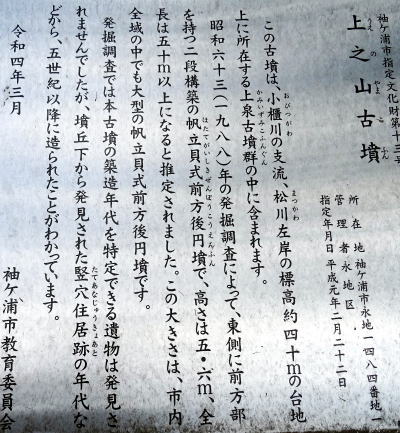 袖ケ浦市指定文化財第十三号
上之山古墳
うえのやまこふん
所在地 袖ケ浦市永地一四八四番地
管理者 永地区
指定年月日 平成元年二月二十二日
この古墳は、小櫃川の支流、松川左岸の標高約四十mの台地
おびつがわ
まつかわ
上に所在する上泉古墳群の中に含まれます。
かみいずみこふんぐん
昭和六十三(一九八八)年の発掘調査によって、東側に前方部
を持つ二段構築の帆立貝式前方後円墳で、高さは五・六m、全
はたてがいしきぜんぽうこうえんふん
長は五十m以上になると推定されました。この大きさは、市内
全域の中でも大型の帆立貝式前方後円墳です。
発掘調査では本古墳の築造年代を特定できる遺物は発見さ
れませんでしたが、墳丘下から発見された竪穴住居跡の年代な
たてあなじゅうきょあと
どから、五世紀以降に造られたことがわかっています。
令和四年三月
袖ケ浦市教育委員会